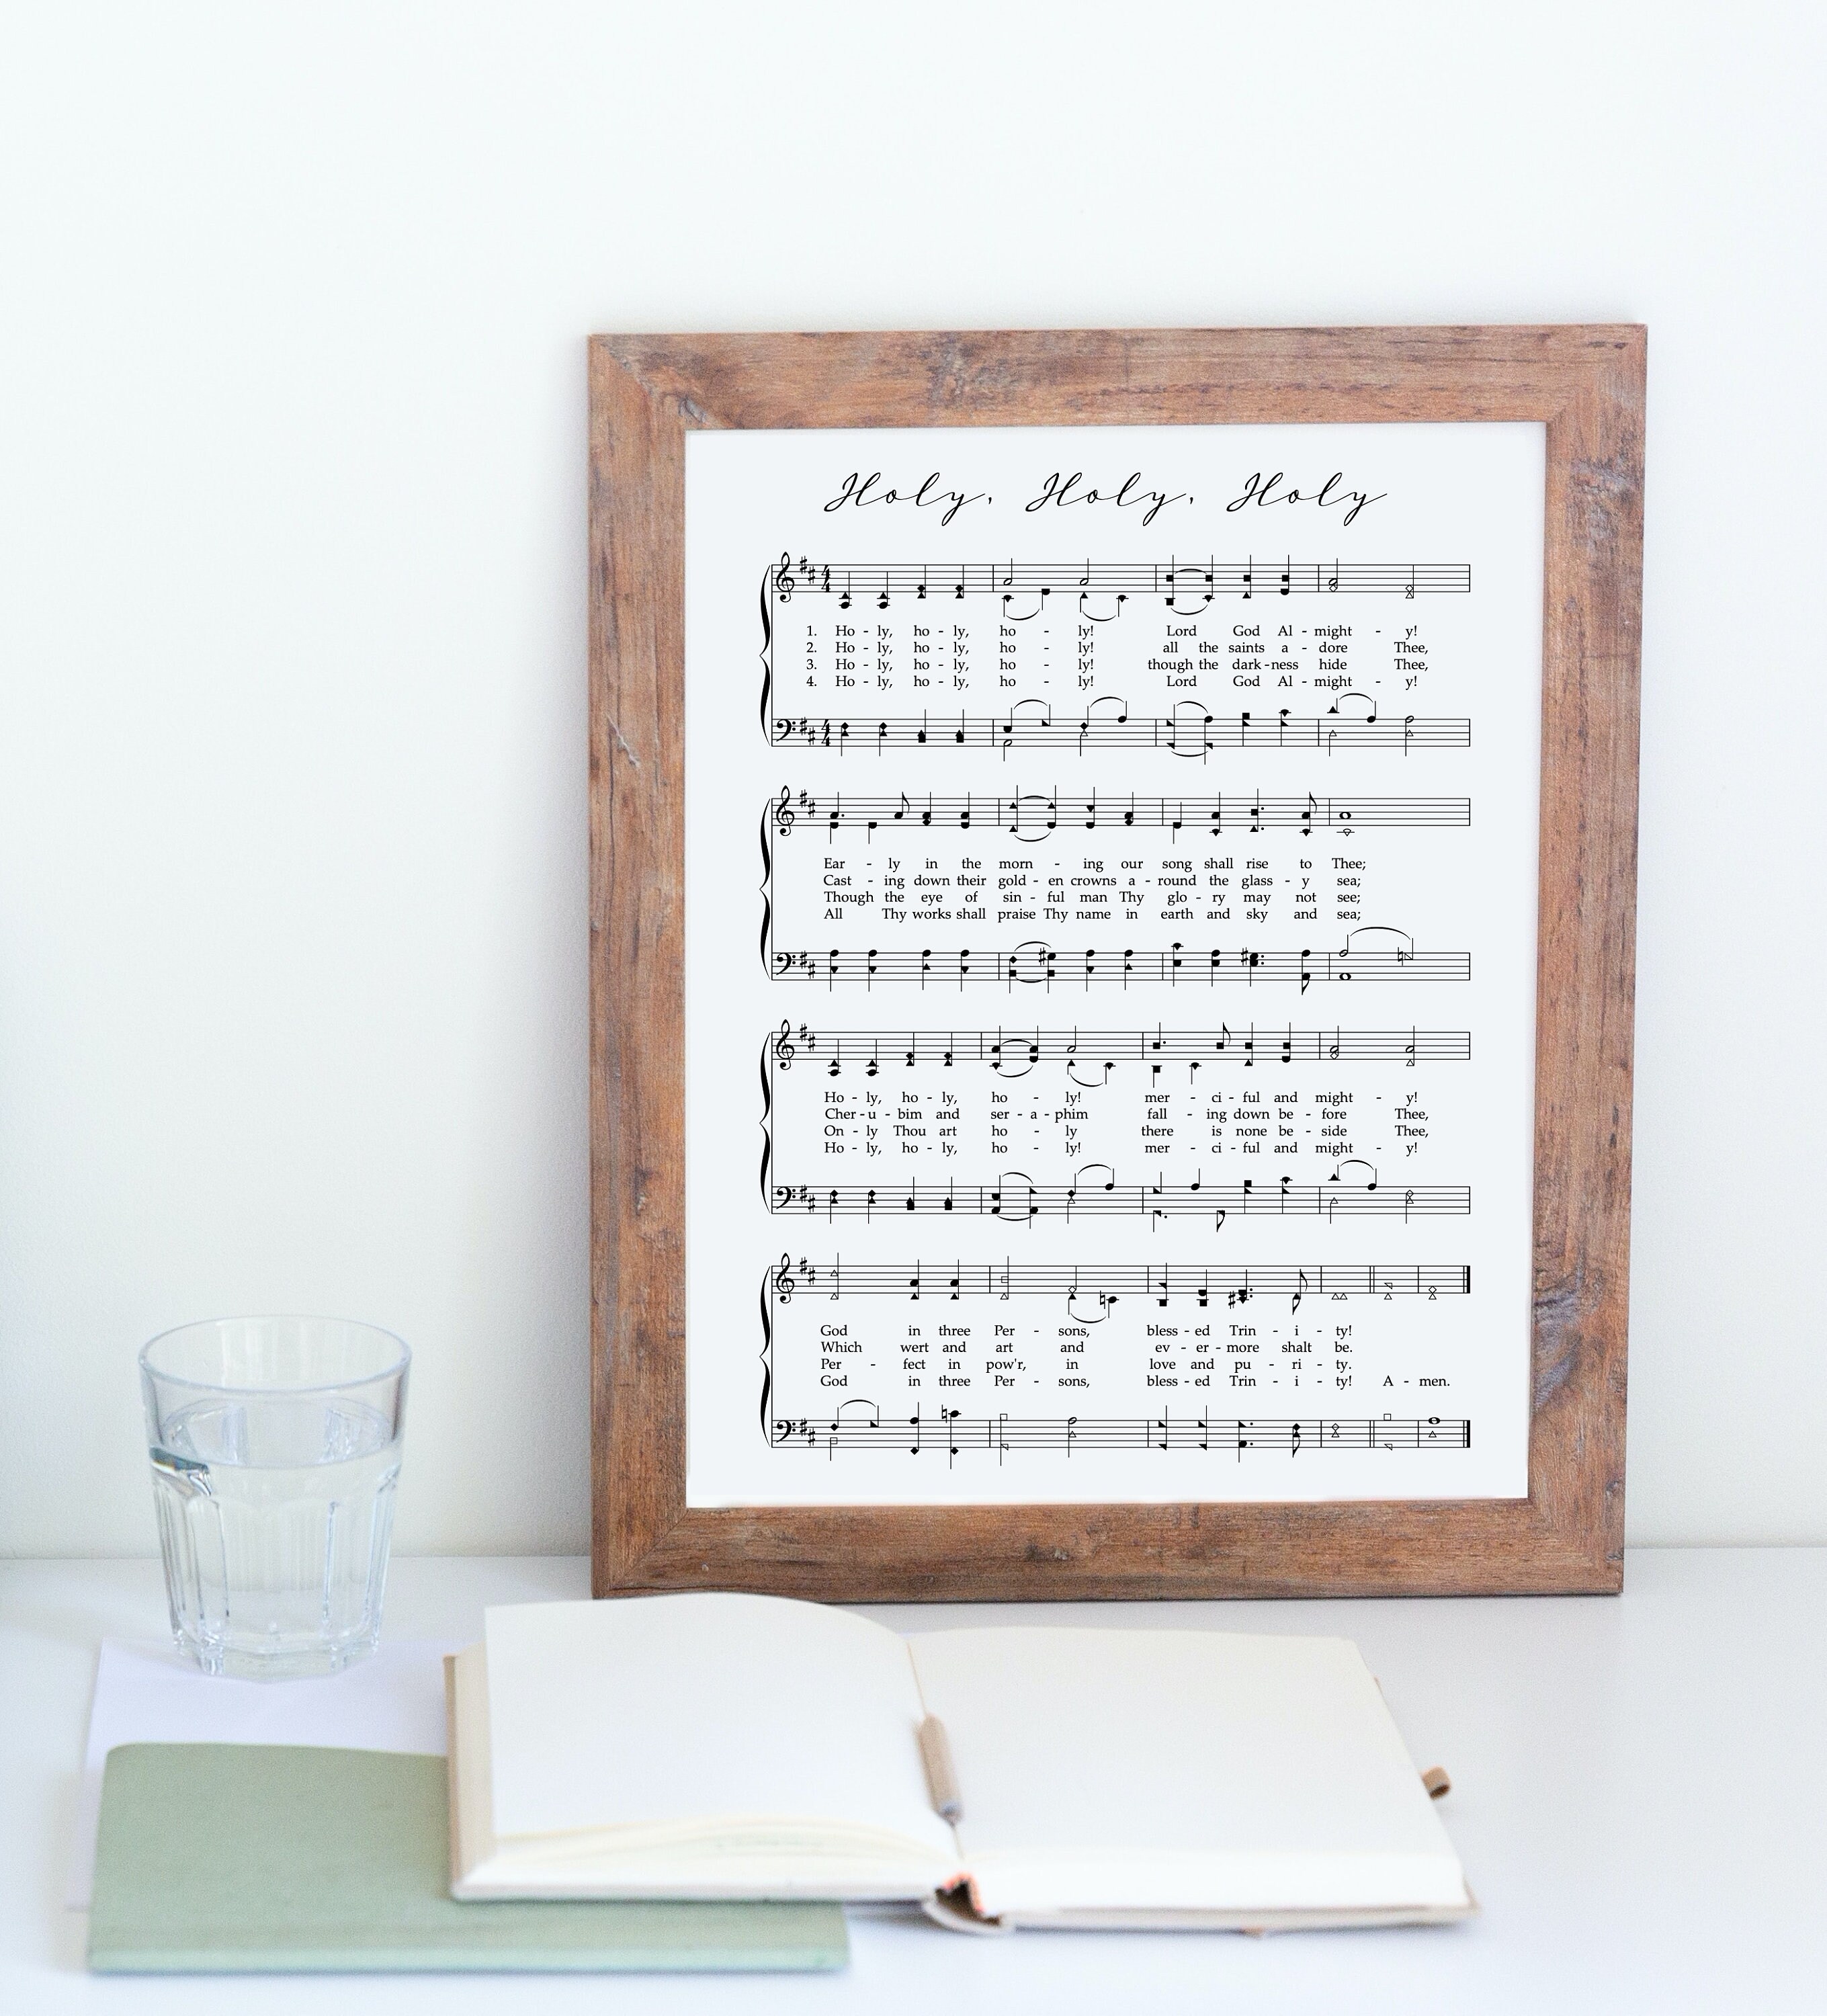 Holy, Holy, Holy
1. Ho - ly, ho - ly, ho - ly! Lord God Al - might - y!
2. Ho - ly, ho - ly, ho - ly! all the saints a - dore Thee,
3. Ho - ly, ho - ly, ho - ly! though the dark - ness hide Thee,
4. Ho - ly, ho - ly, ho - ly! Lord God Al - might - y!
Ear - ly in the morn - ing our song shall rise to Thee;
Cast - ing down their gold - en crowns a - round the glass - y sea;
Though the eye of sin - ful man Thy glo - ry may not see;
All Thy works shall praise Thy name in earth and sky and sea;
Ho - ly, ho - ly, ho - ly! mer - ci - ful and might - y!
Cher - u - bim and ser - a - phim fall - ing down be - fore Thee,
On - ly Thou art ho - ly there is none be - side Thee,
Ho - ly, ho - ly, ho - ly! mer - ci - ful and might - y!
God in three Per - sons, bless - ed Trin - i - ty!
Which wert and art and ev - er - more shalt be.
Per - fect in pow'r, in love and pu - ri - ty.
God in three Per - sons, bless - ed Trin - i - ty! A - men.